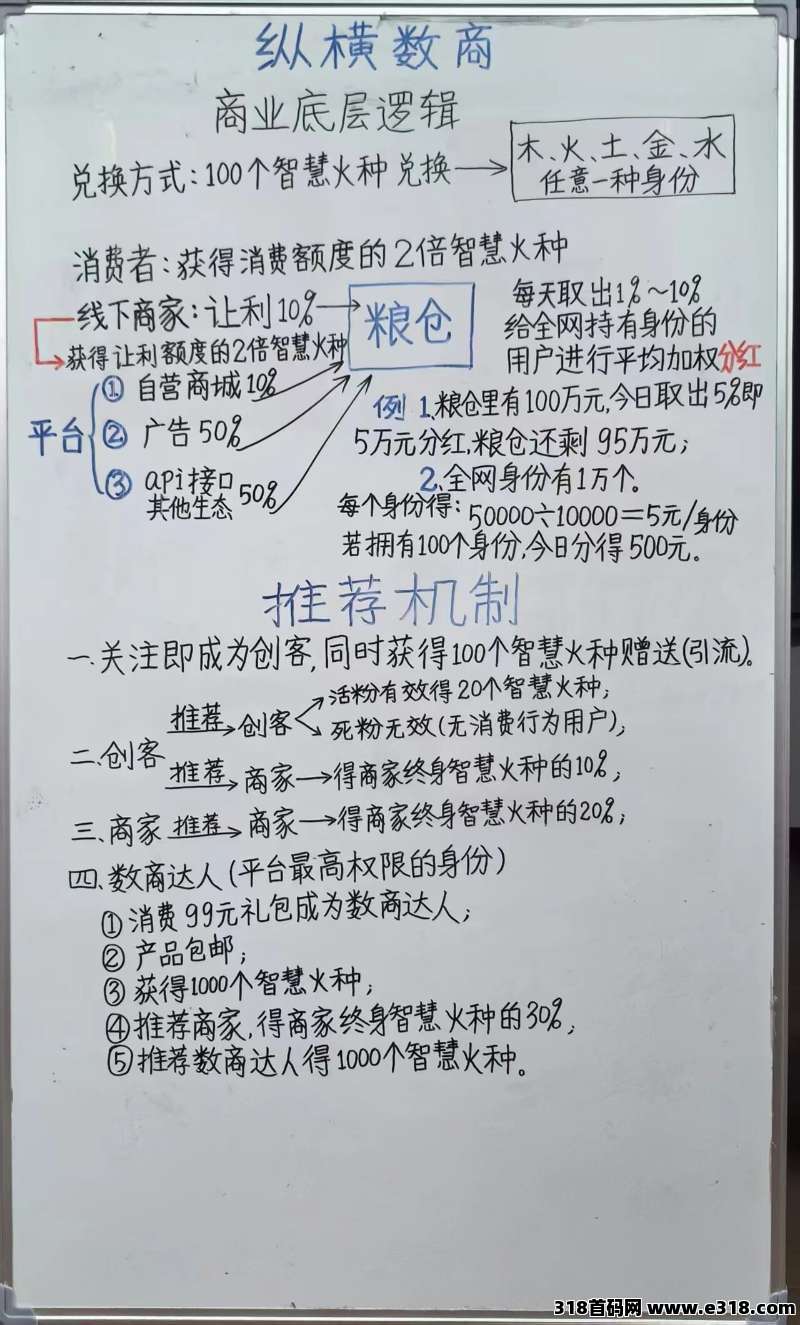 纵横数商
商业底层逻辑
兑换方式：100个智慧火种 兑换
木、火、土、金、水
任意一种身份
消费者：获得消费额度的2倍智慧火种
线下商家：让利10%
获得让利额度的2倍智慧火种
粮仓
平台
① 自营商城10%
② 广告50%
③ api接口
其他生态 50%
每天取出1%~10%
给全网持有身份的
用户进行平均加权分红
例 1、粮仓里有100万元,今日取出5%即
5万元分红,粮仓还剩 95万元；
2、全网身份有1万个。
每个身份得：50000÷10000＝5元/身份
若拥有100个身份,今日分得500元。
推荐机制
一、关注即成为创客,同时获得100个智慧火种赠送(引流)。
二、创客
推荐 创客
活粉有效得20个智慧火种；
死粉无效(无消费行为用户)；
推荐 商家 得商家终身智慧火种的10%；
三、商家 推荐 商家 得商家终身智慧火种的20%；
四、数商达人(平台最高权限的身份)
① 消费99元礼包成为数商达人；
② 产品包邮；
③ 获得1000个智慧火种；
④ 推荐商家,得商家终身智慧火种的30%；
⑤ 推荐数商达人得1000个智慧火种。
318首码网 www.e318.com